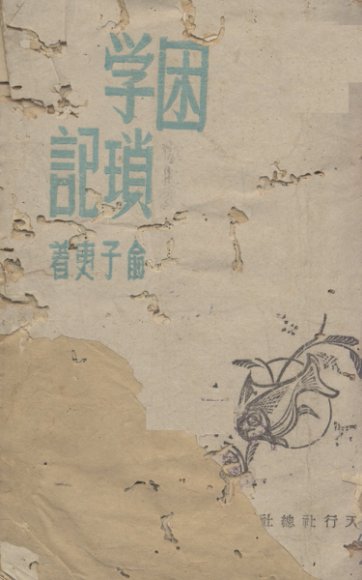 困
学瑣
記
俞子夷著
天行社總社